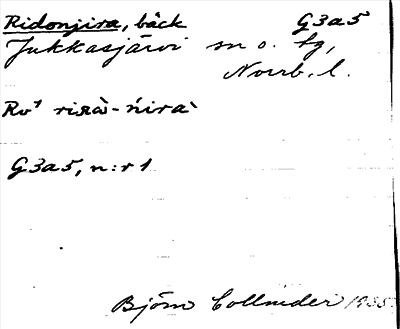 Ridonjira, bäck G3a5
Jukkasjärvi sn o. tg,
Norrb. l.
Rv¹ riᴙà-ńirà
G3a5, n:r 1
Björn Collinder 1935